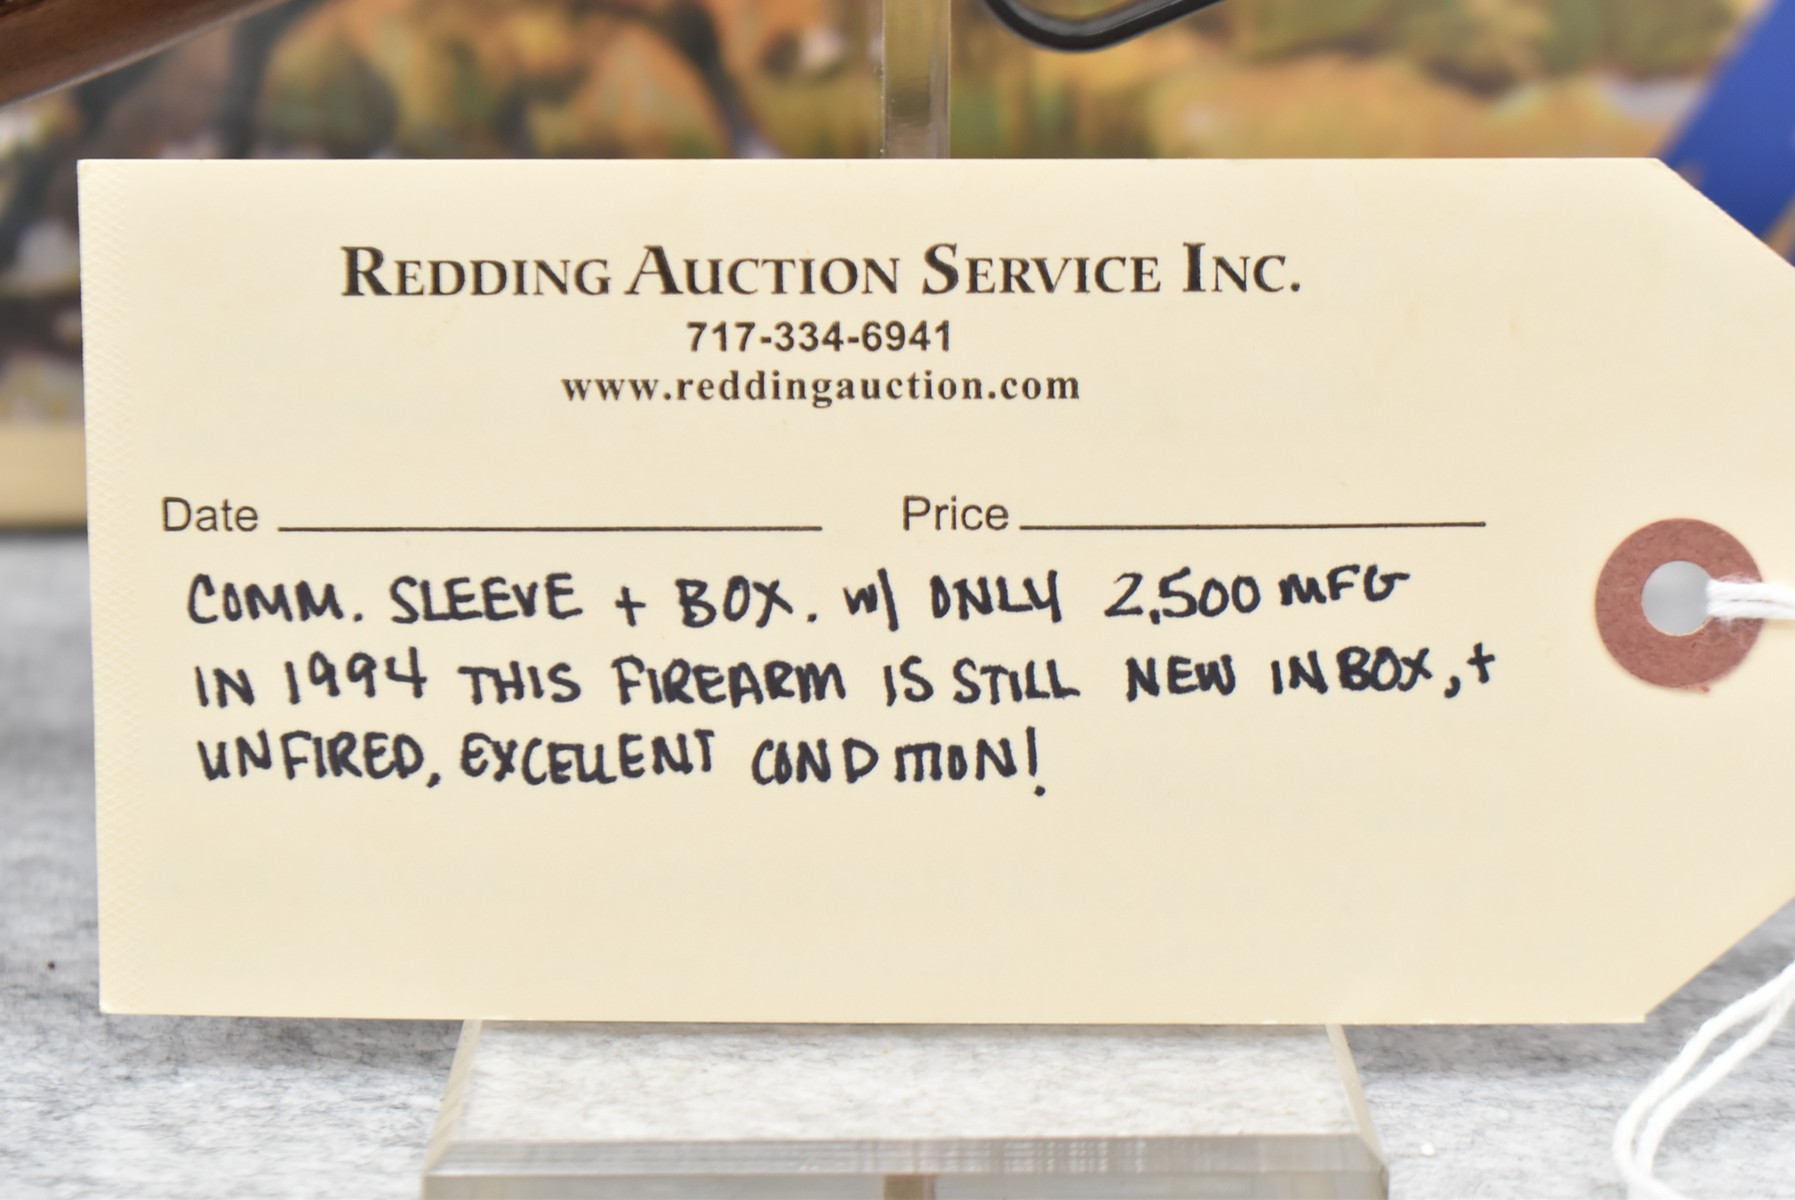 REDDING AUCTION SERVICE INC.
717-334-6941
www.reddingauction.com
Date Price
COMM. SLEEVE + BOX. W/ ONLY 2,500 MFG
IN 1994 THIS FIREARM IS STILL NEW IN BOX, +
UNFIRED, EXCELLENT CONDITION!